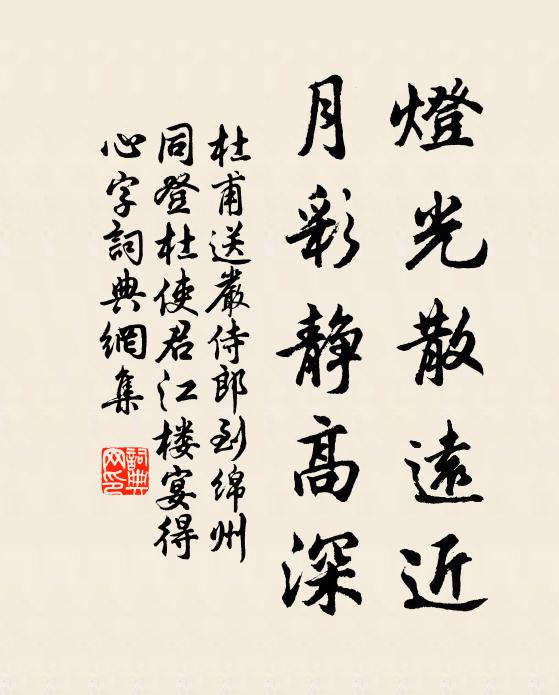 燈光散遠近
月彩静高深
杜甫送嚴侍郎到綿州
同登杜使君江楼宴得
心字詞典網集
詞典
网印